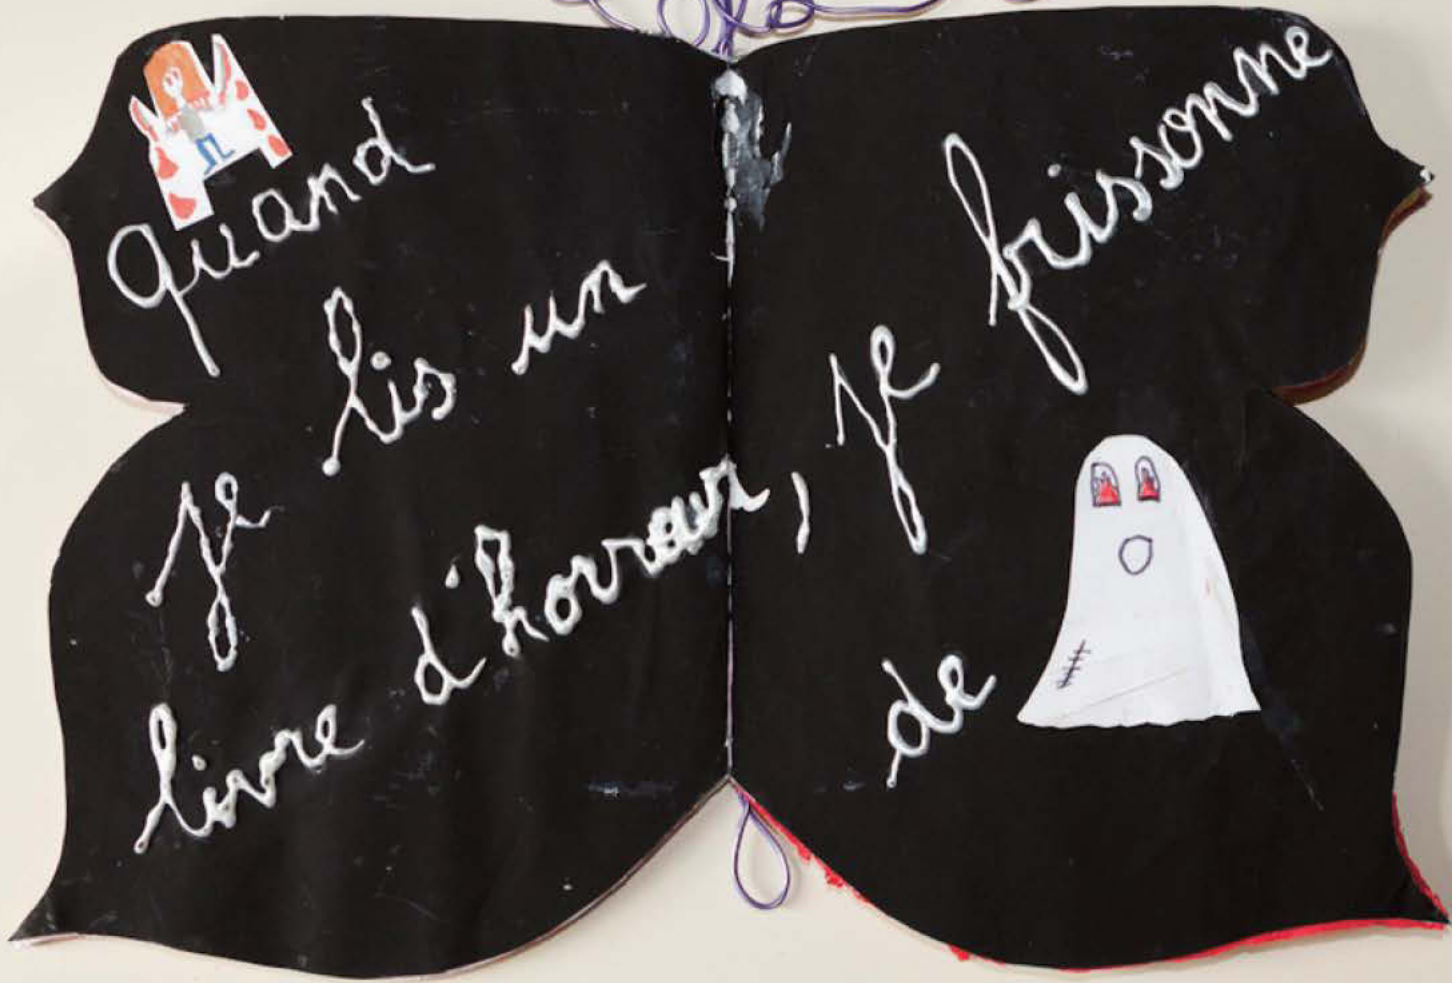 quand
je lis un
livre d'horreur, je frissonne
de